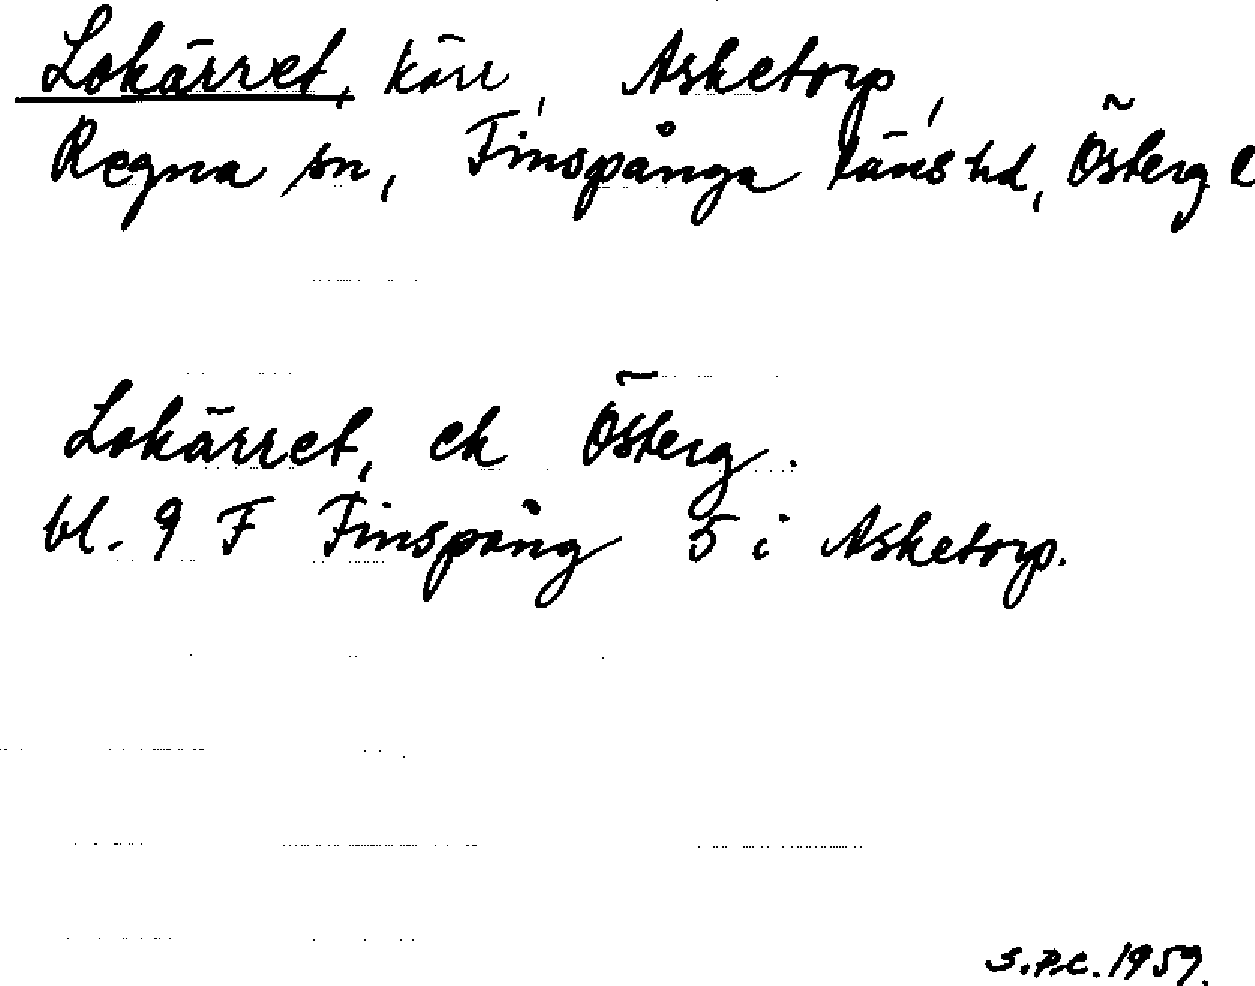 Lokärret, kärr, Asketorp,
Regna sn, Finspånga läns hd, Österg l
Lokärret, ek Österg.
bl. 9 F Finspång 5 i Asketorp.
S.P.C. 1959.